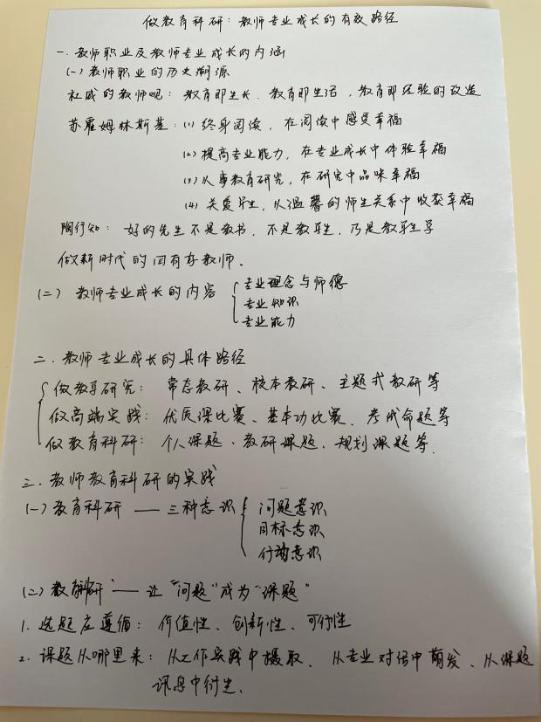 做教育科研：教师专业成长的有效路径
一、教师职业及教师专业成长的内涵
(一) 教师职业的历史溯源
杜威的教师观：教育即生长、教育即生活，教育即经验的改造
苏霍姆林斯基：(1) 终身阅读，在阅读中感受幸福
(2) 提高专业能力，在专业成长中体验幸福
(3) 从事教育研究，在研究中品味幸福
(4) 关爱学生，从温馨的师生关系中收获幸福
陶行知：好的先生不是教书，不是教学生，乃是教学生学
做新时代的四有好教师。
(二) 教师专业成长的内容
专业理念与师德
专业知识
专业能力
二、教师专业成长的具体路径
做教学研究：常态教研、校本教研、主题式教研等
做高端实践：优质课比赛、基本功比赛、考试命题等
做教育科研：个人课题、教研课题、规划课题等.
三、教师教育科研的实践
(一) 教育科研 —— 三种意识
问题意识
目标意识
行动意识
(二) 教育科研 —— 让“问题”成为“课题”
1. 选题应遵循：价值性、创新性、可行性
2. 课题从哪里来：从工作实践中摄取、从专业对话中萌发、从课题
讯息中衍生.